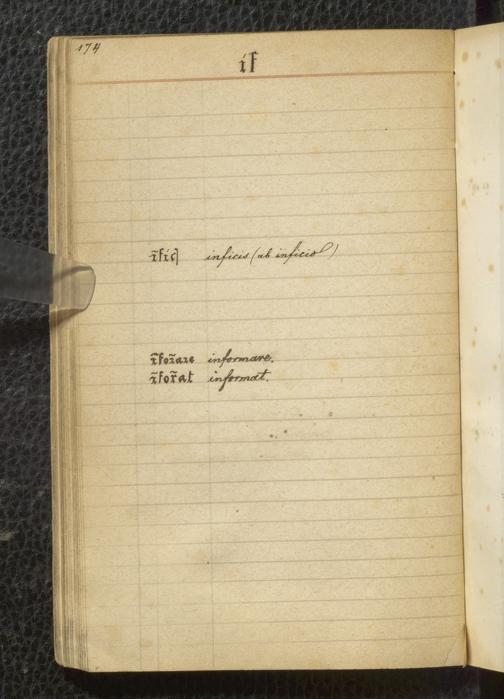 174
if
ĩfic̨ inficis (ab inficio)
ĩfor̃are informare.
ĩfor̃at informat.